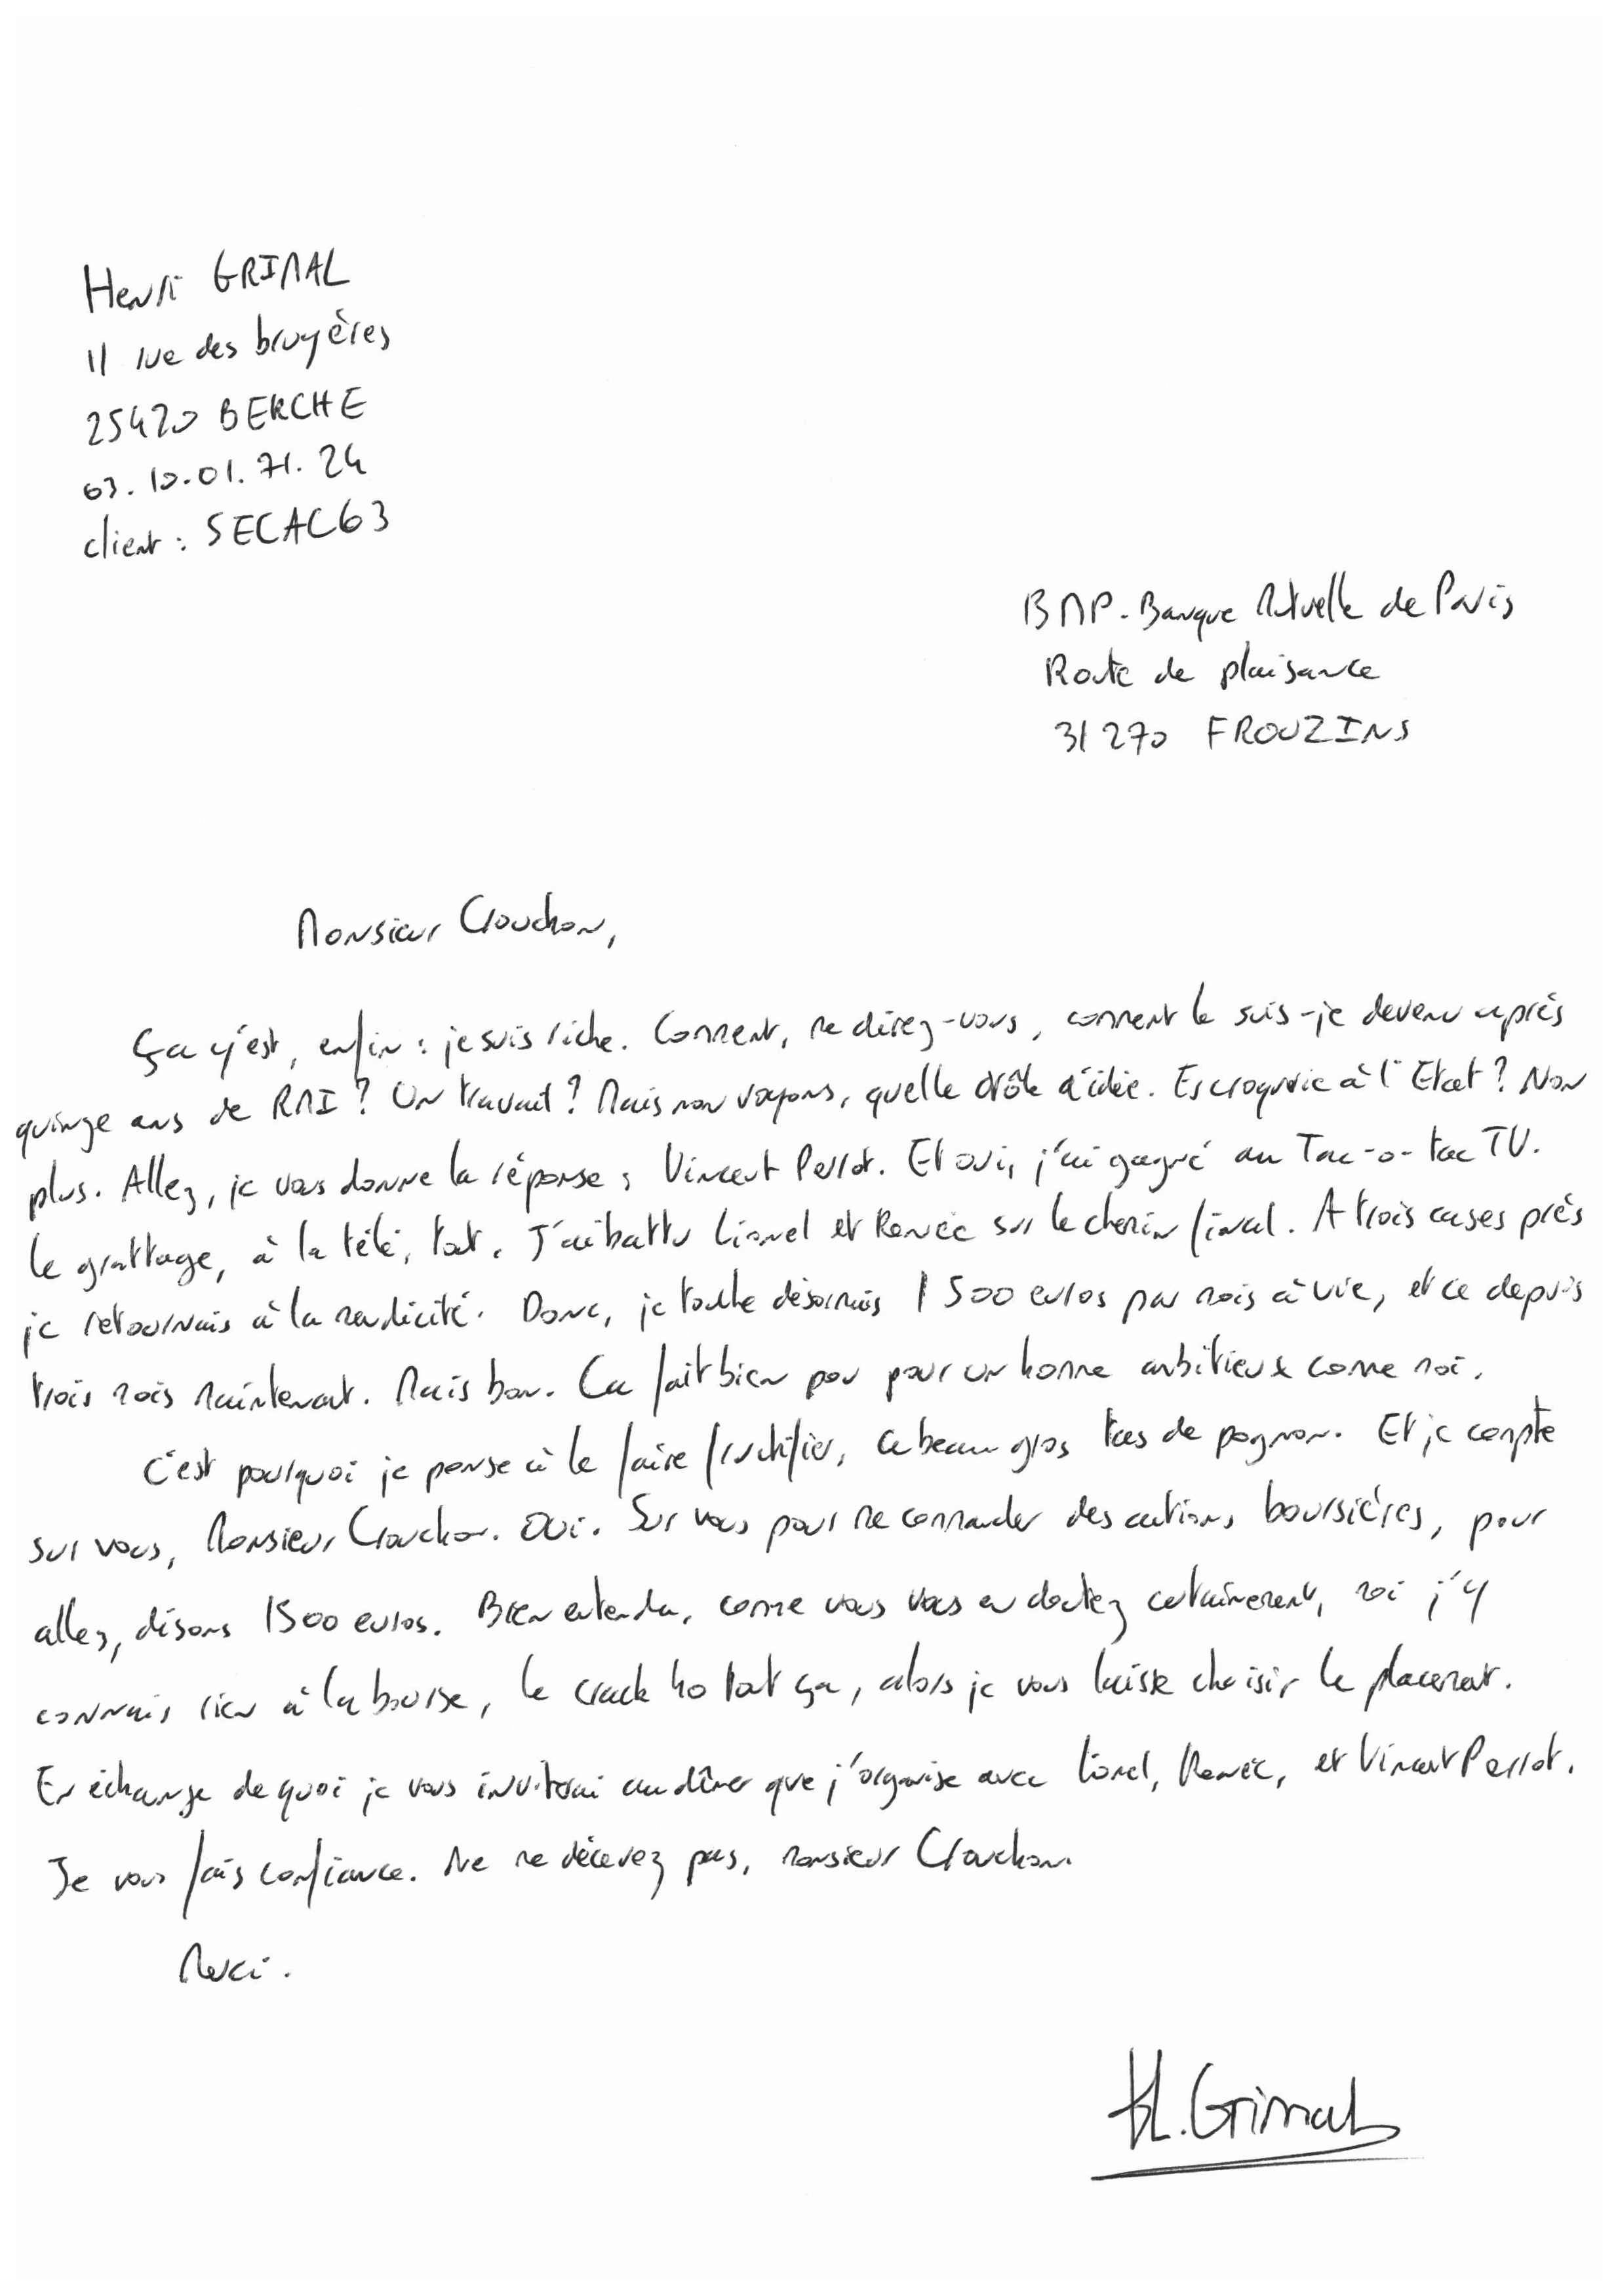 Henri GRIMAL
11 rue des bruyères
25420 BERCHE
03.10.01.71.24
client : SECAC63
BMP-Banque Mutuelle de Paris
Route de plaisance
31270 FROUZINS
Monsieur Crouchon,
Ça y'est, enfin : je suis riche. Comment, me direz-vous, comment le suis-je devenu après
quinze ans de RMI ? Un travail ? Mais non voyons, quelle drôle d'idée. Escroquerie à l'Etat ? Non
plus. Allez, je vous donne la réponse : Vincent Perrot. Et oui, j'ai gagné au Tac-o-tac TV.
Le grattage, à la télé, tout. J'ai battu Lionel et Renée sur le chemin final. A trois cases près
je retournais à la mendicité. Donc, je touche désormais 1 500 euros par mois à vie, et ce depuis
trois mois maintenant. Mais bon. Ca fait bien peu pour un homme ambitieux comme moi.
C'est pourquoi je pense à le faire fructifier, ce beau gros tas de pognon. Et je compte
sur vous, Monsieur Crouchon. Oui. Sur vous pour me commander des actions boursières, pour
allez, disons 1500 euros. Bien entendu, comme vous vous en doutez certainement, moi j'y
connais rien à la bourse, le crack 40 tout ça, alors je vous laisse choisir le placement.
En échange de quoi je vous inviterai au dîner que j'organise avec Lionel, Renée, et Vincent Perrot.
Je vous fais confiance. Ne me décevez pas, monsieur Crouchon.
Merci.
H. Grimal